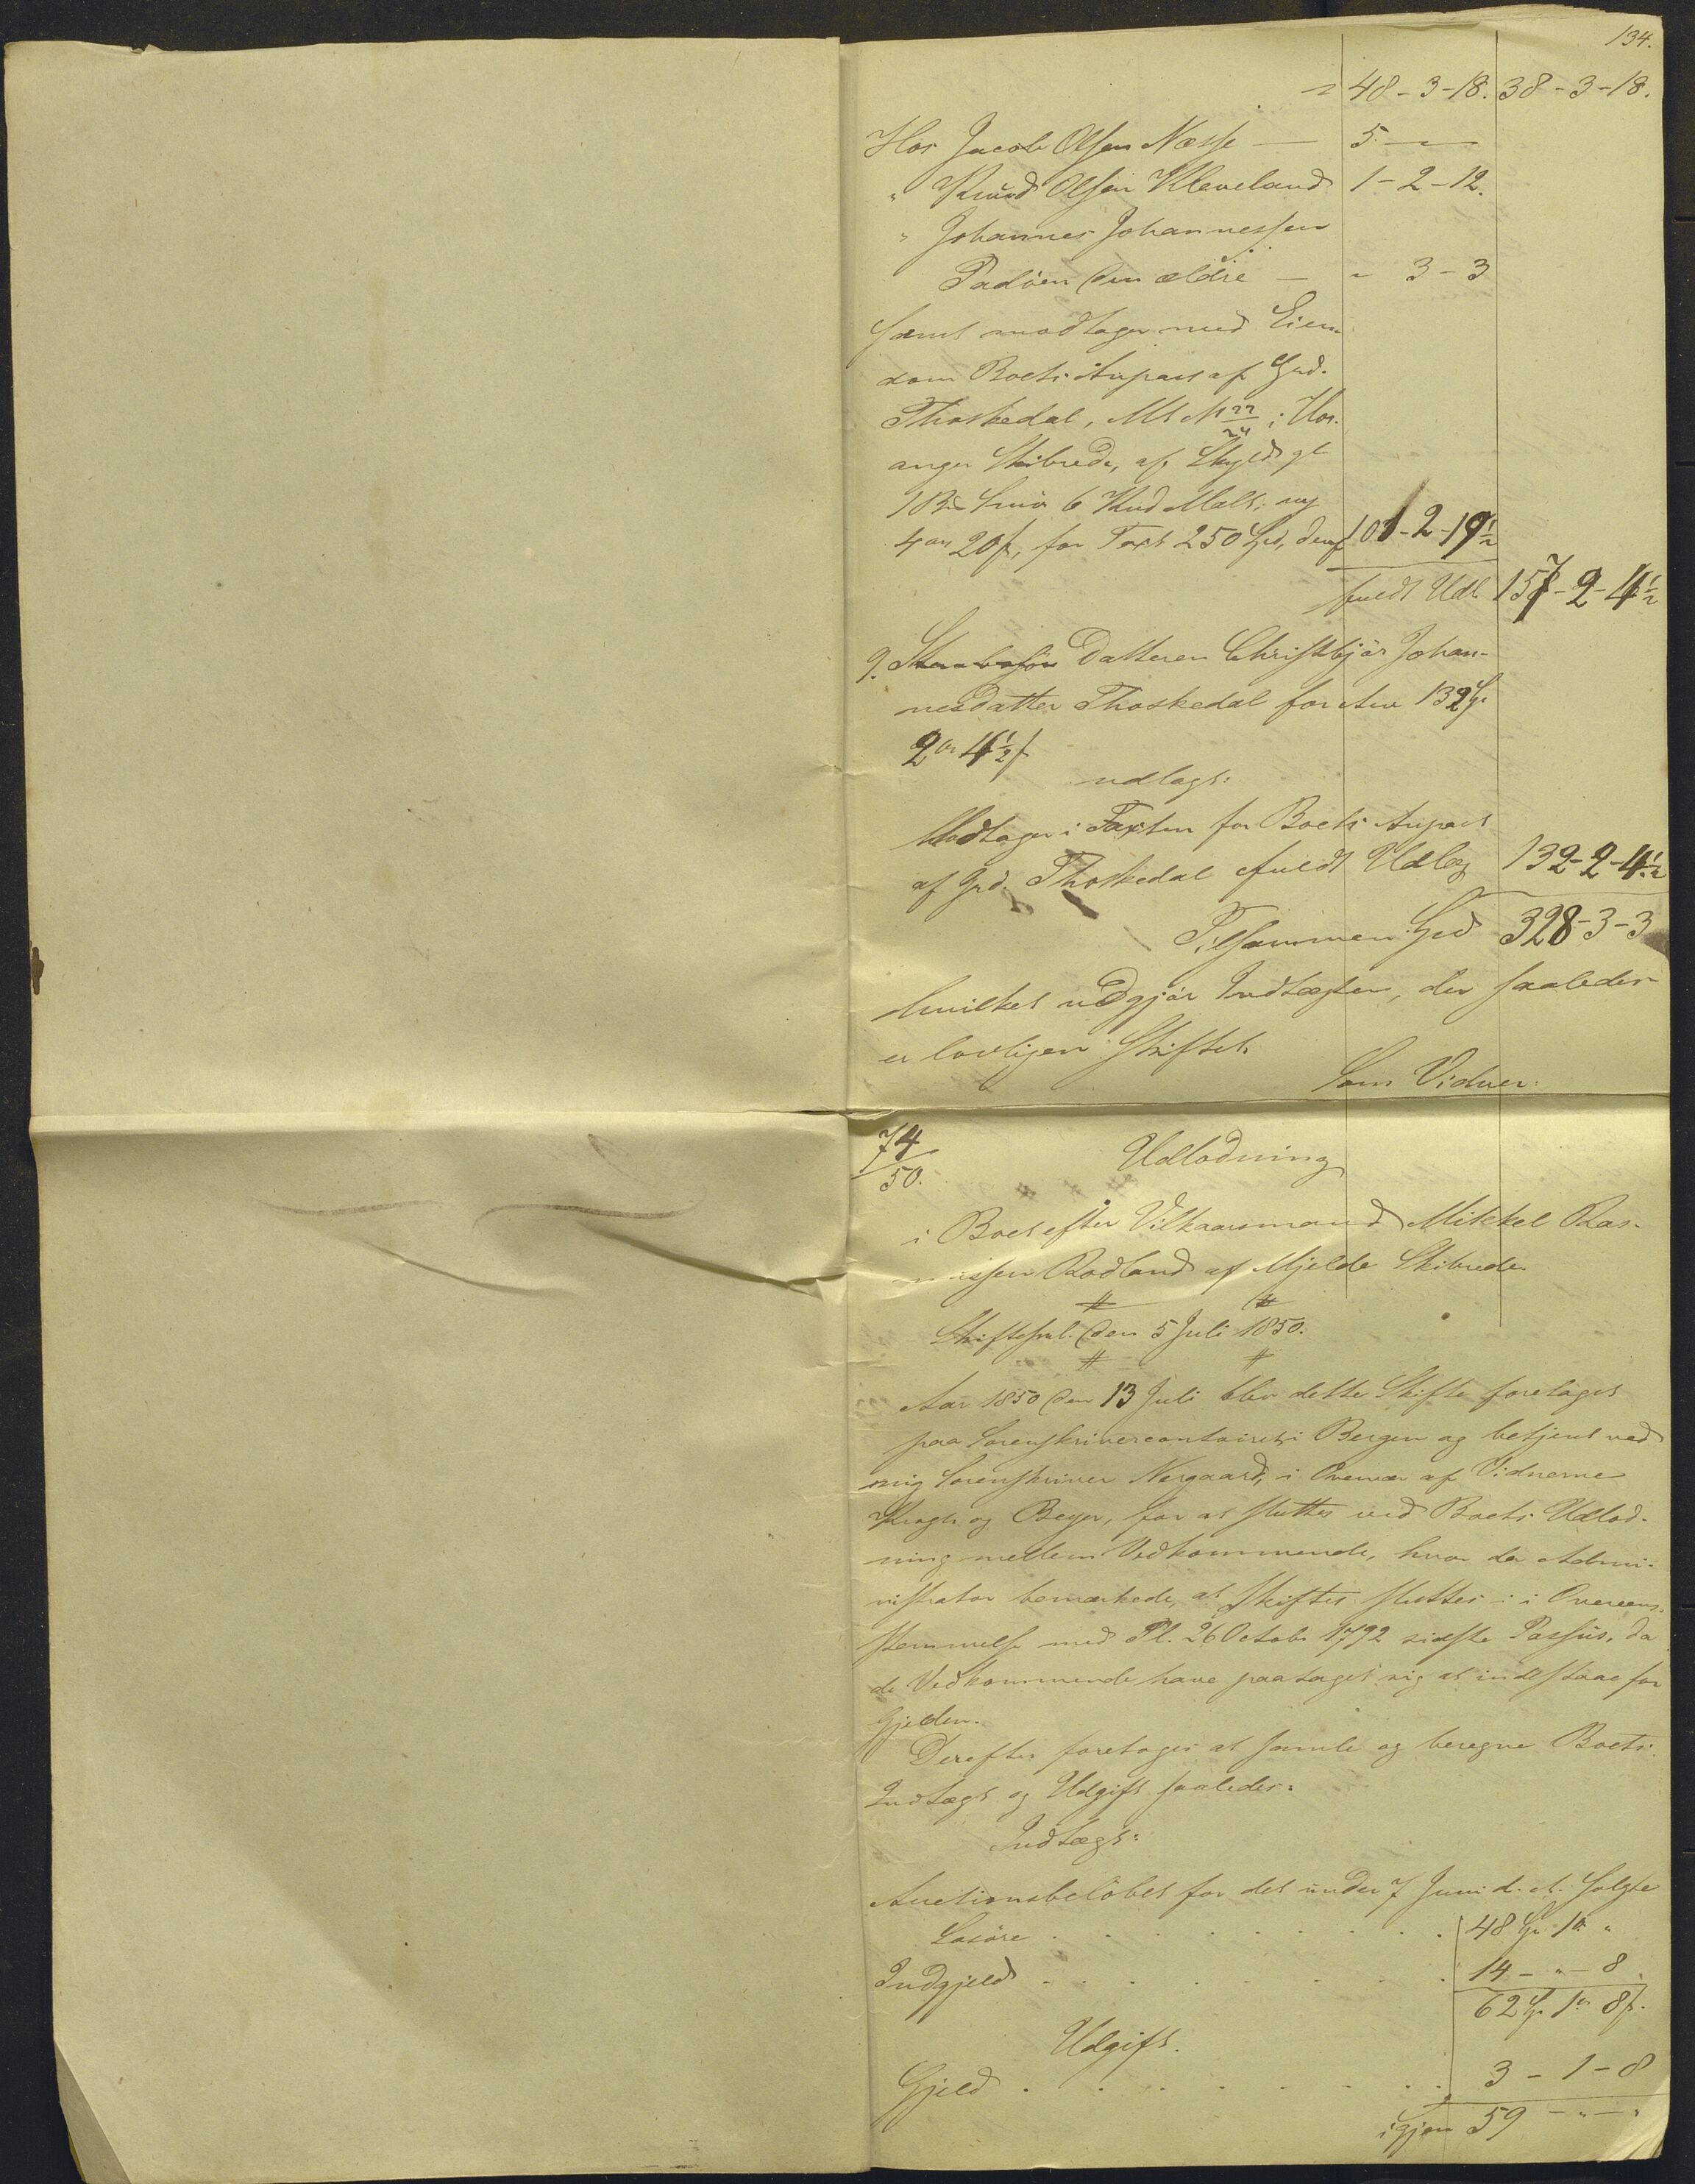 134.
48-3-18. 38-3-18.
Hos Jacob Olsen Næsse — 5 — 
" Knud Olsen Kleveland 1-2-12.
" Johannes Johannessen
Padöen den ældre — " 3-3
samt modtager med Eien-
dom Boets Anpart af Grd.
Thoskedal, Mt N 22/24 i Hos-
anger Skibrede, af Skyld gl
1 B Smör 6 Kud Malt, ny
4 ort 20 s, for Taxt 250 Spd, deraf 101-2-19½
fuldt Udl 157-2-4½
9. Datteren Christbjör Johan-
nesdatter Thoskedal for Arv 132 Sp
2 ort 4½ s
udlagt:
Modtager i Taxten for Boets Anpart
af Grd. Thoskedal fuldt Udlæg 132-2-4½
Tilsammen Spd 328-3-3
hvilket udgjör Indtægten, der saaledes
er lovligen Skiftet.
Som Vidner:
74/50.
Udlodning
i Boet efter Vilkaarsmand Mikkel Ras-
mussen Rödland af Mjelde Skibrede.
Skifteprot. den 5 Juli 1850.
Aar 1850 den 13 Juli blev dette Skifte foretaget
paa Sorenskrivercontoiret i Bergen og betjent ved
mig Sorenskriver Nergaard, i Overvær af Vidnerne
Krogh og Beyer, for at sluttes ved Boets Udlod-
ning mellem Vedkommende, hvor da Admi-
nistrator bemærkede, at Skiftet sluttes i Overeens-
stemmelse med Pl. 26 Octobr 1792 sidste Passus, da
de Vedkommende have paataget sig at indestaae for
Gjelden.
Derefter foretoges at samle og beregne Boets
Indtægt og Udgift saaledes:
Indtægt:
Auctionsbelöbet for det under 7 Juni d. A. solgte
Lösöre . . . . . . . . 48 Sp 1 ort "
Indgjeld . . . . . . . 14 - " - 8
62 Sp 1 ort 8 s.
Udgift.
Gjeld . . . . . . . 3 - 1 - 8
igjen 59 - " - "